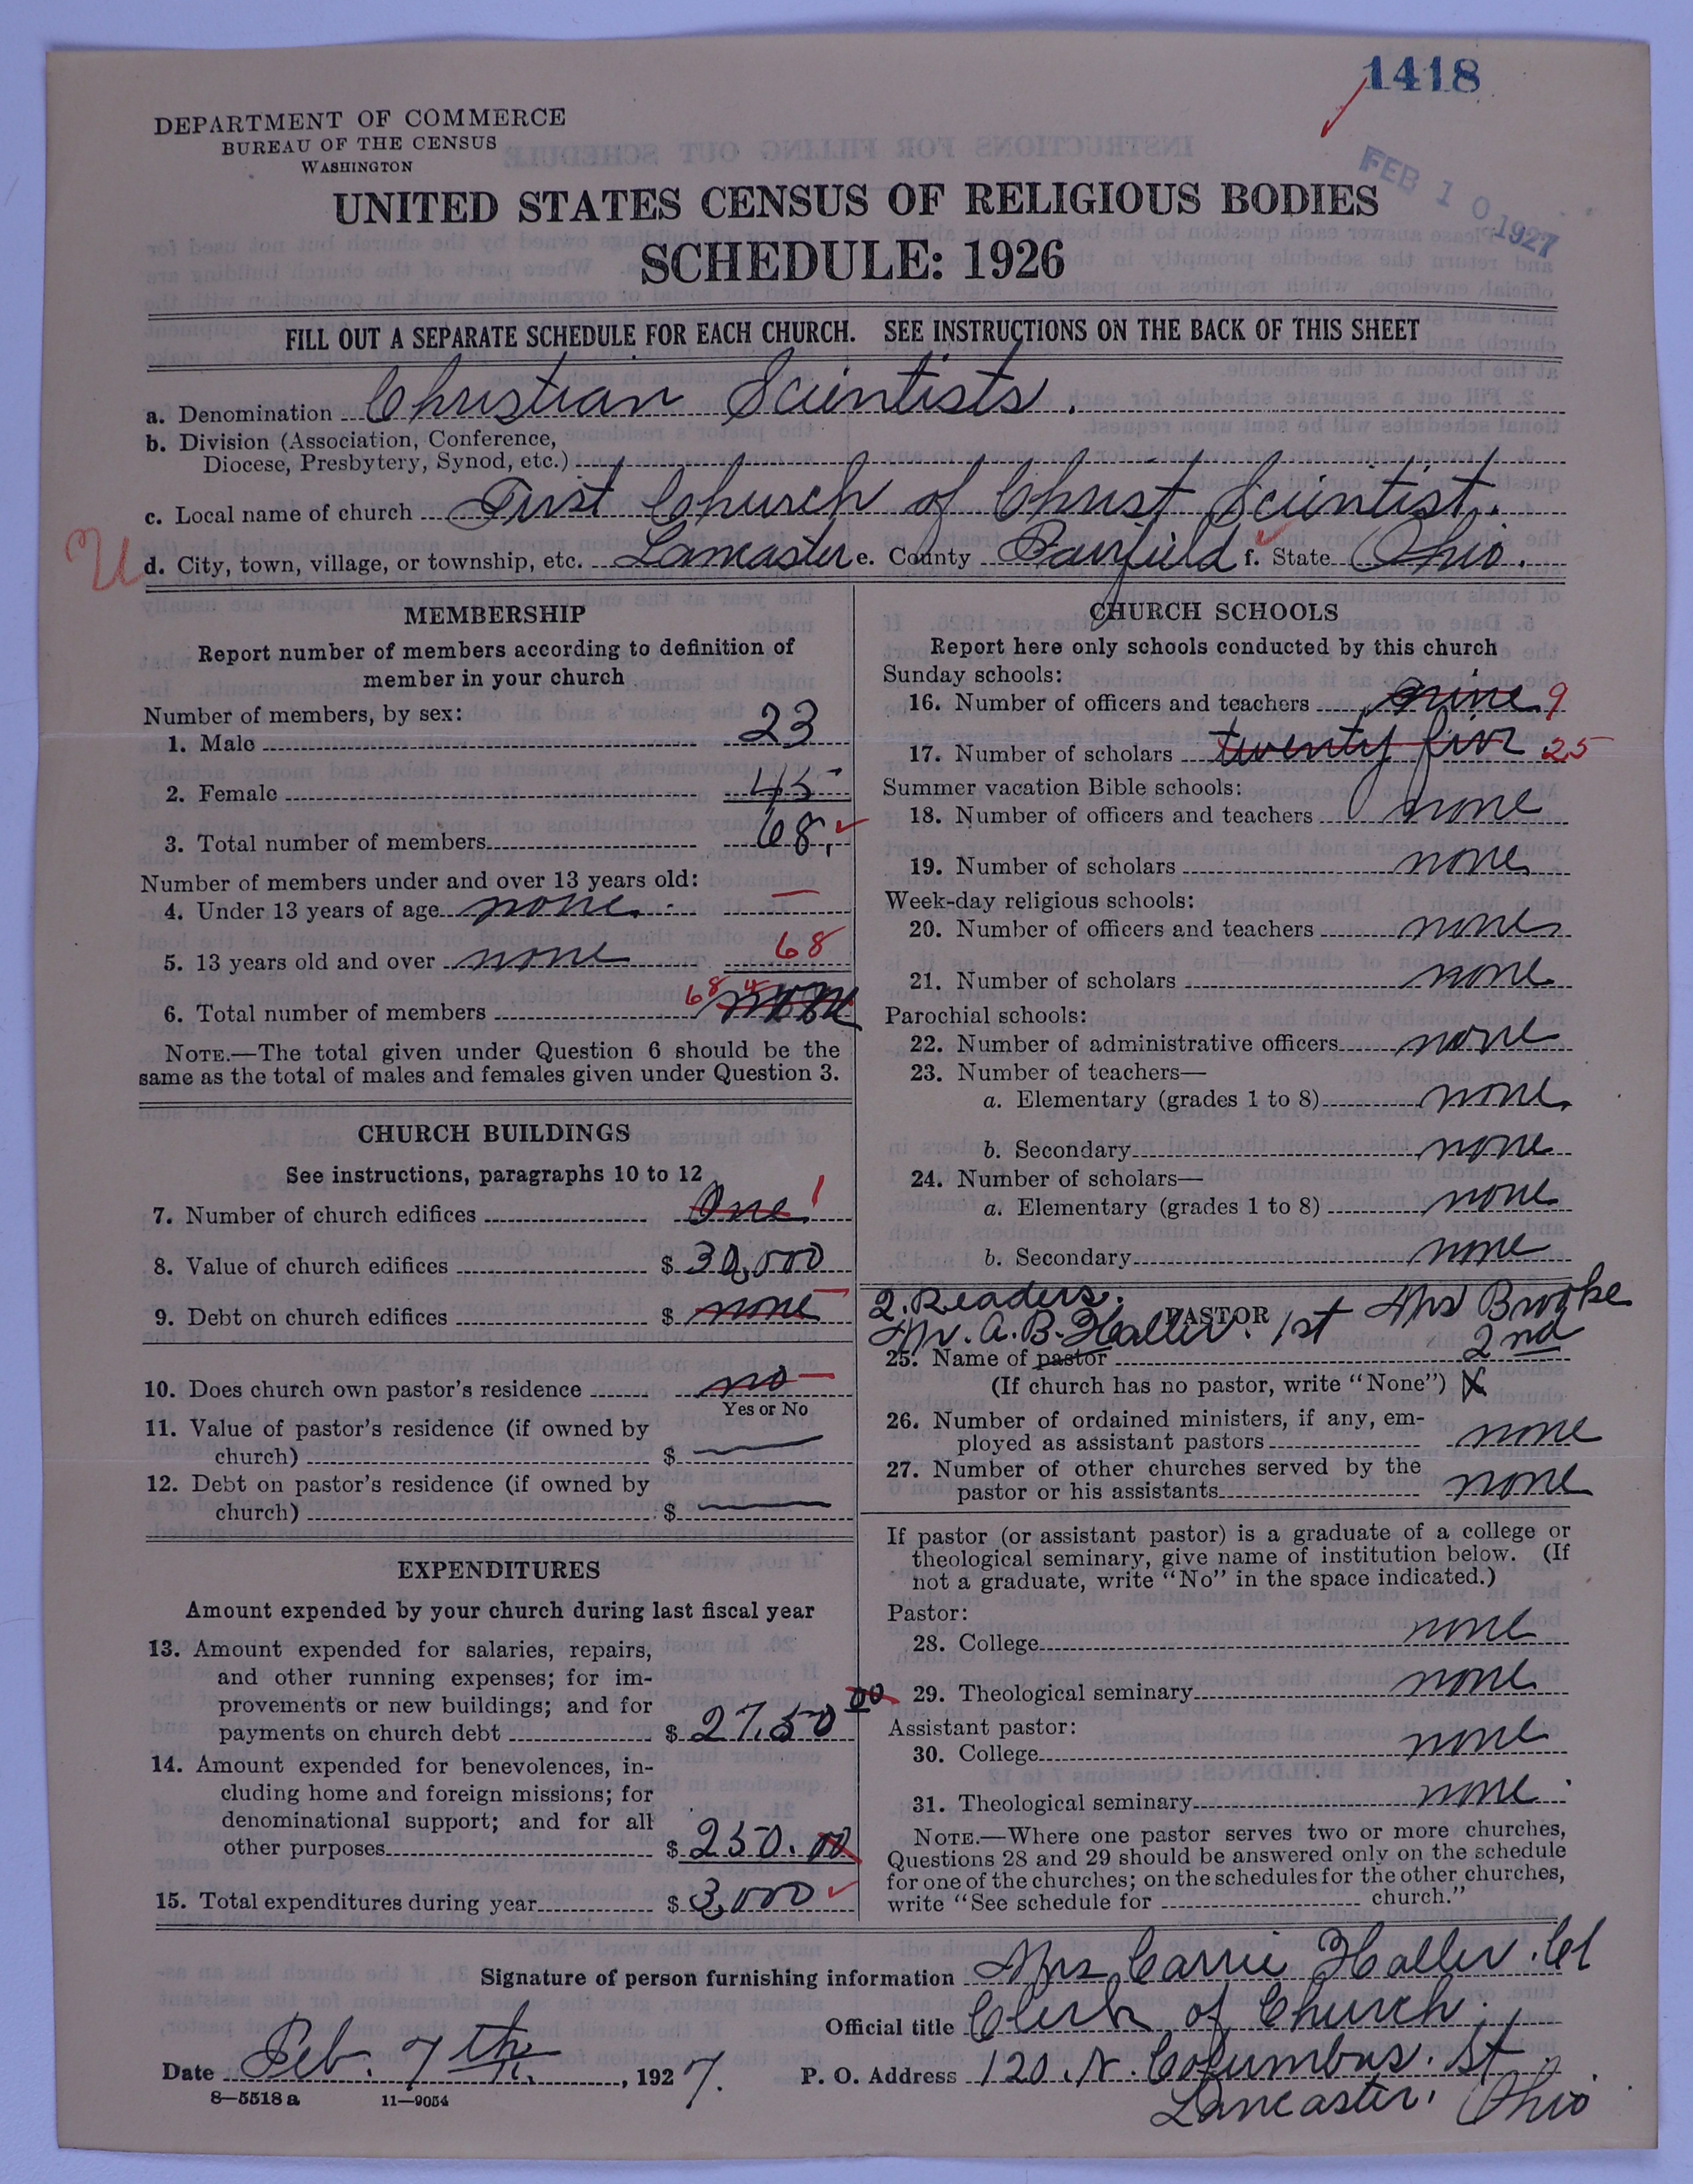 1418
DEPARTMENT OF COMMERCE
BUREAU OF THE CENSUS
WASHINGTON
FEB 10 1927
UNITED STATES CENSUS OF RELIGIOUS BODIES
SCHEDULE: 1926
FILL OUT A SEPARATE SCHEDULE FOR EACH CHURCH. SEE INSTRUCTIONS ON THE BACK OF THIS SHEET
a. Denomination Christian Scientists.
b. Division (Association, Conference,
Diocese, Presbytery, Synod, etc.)
c. Local name of church First Church of Christ Scientist.
U d. City, town, village, or township, etc. Lancaster e. County Fairfield f. State Ohio.
MEMBERSHIP
Report number of members according to definition of
member in your church
Number of members, by sex:
1. Male 23
2. Female 45
3. Total number of members 68.
Number of members under and over 13 years old:
4. Under 13 years of age none. —
5. 13 years old and over none 68
6. Total number of members 68
NOTE.—The total given under Question 6 should be the
same as the total of males and females given under Question 3.
CHURCH BUILDINGS
See instructions, paragraphs 10 to 12
7. Number of church edifices One. 1
8. Value of church edifices $ 30,000
9. Debt on church edifices $ none —
10. Does church own pastor's residence no —
Yes or No
11. Value of pastor's residence (if owned by
church) $ —
12. Debt on pastor's residence (if owned by
church) $ —
EXPENDITURES
Amount expended by your church during last fiscal year
13. Amount expended for salaries, repairs,
and other running expenses; for im-
provements or new buildings; and for
payments on church debt $ 27,50 00
14. Amount expended for benevolences, in-
cluding home and foreign missions; for
denominational support; and for all
other purposes $ 250.00
15. Total expenditures during year $ 3,000
CHURCH SCHOOLS
Report here only schools conducted by this church
Sunday schools:
16. Number of officers and teachers nine 9
17. Number of scholars twenty five 25
Summer vacation Bible schools:
18. Number of officers and teachers none
19. Number of scholars none
Week-day religious schools:
20. Number of officers and teachers none
21. Number of scholars none
Parochial schools:
22. Number of administrative officers none
23. Number of teachers—
a. Elementary (grades 1 to 8) none
b. Secondary none
24. Number of scholars—
a. Elementary (grades 1 to 8) none
b. Secondary none
2. Readers.
PASTOR
Mr. A. B. Haller. 1st Mrs
2nd
25. Name of pastor
(If church has no pastor, write "None") X
26. Number of ordained ministers, if any, em-
ployed as assistant pastors none
27. Number of other churches served by the
pastor or his assistants none
If pastor (or assistant pastor) is a graduate of a college or
theological seminary, give name of institution below. (If
not a graduate, write "No" in the space indicated.)
Pastor:
28. College none
29. Theological seminary none
Assistant pastor:
30. College none
31. Theological seminary none
NOTE.—Where one pastor serves two or more churches,
Questions 28 and 29 should be answered only on the schedule
for one of the churches; on the schedules for the other churches,
write "See schedule for church."
Signature of person furnishing information Mrs Carrie Haller. Cl
Official title Clerk of Church.
Date Feb. 7th., 1927. P. O. Address 120. N. Columbus. St.
8—5518 a 11—9054
Lancaster. Ohio